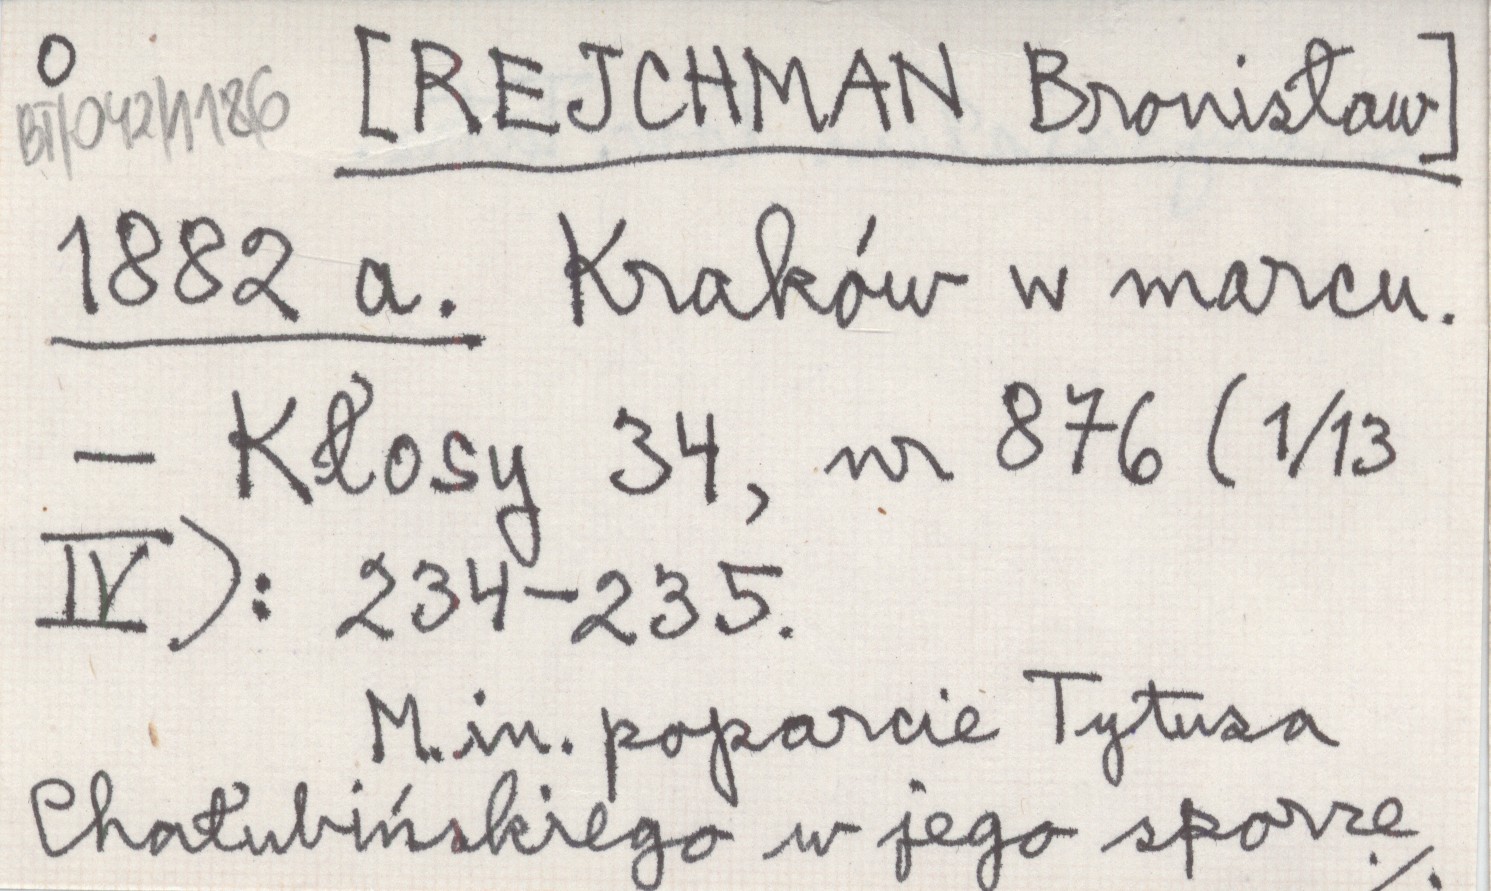 O [REJCHMAN Bronisław]
BT/042/1186
1882 a. Kraków w marcu.
– Kłosy 34, nr 876 (1/13
IV): 234–235.
M.in. poparcie Tytusa
Chałubińskiego w jego sporze ./.